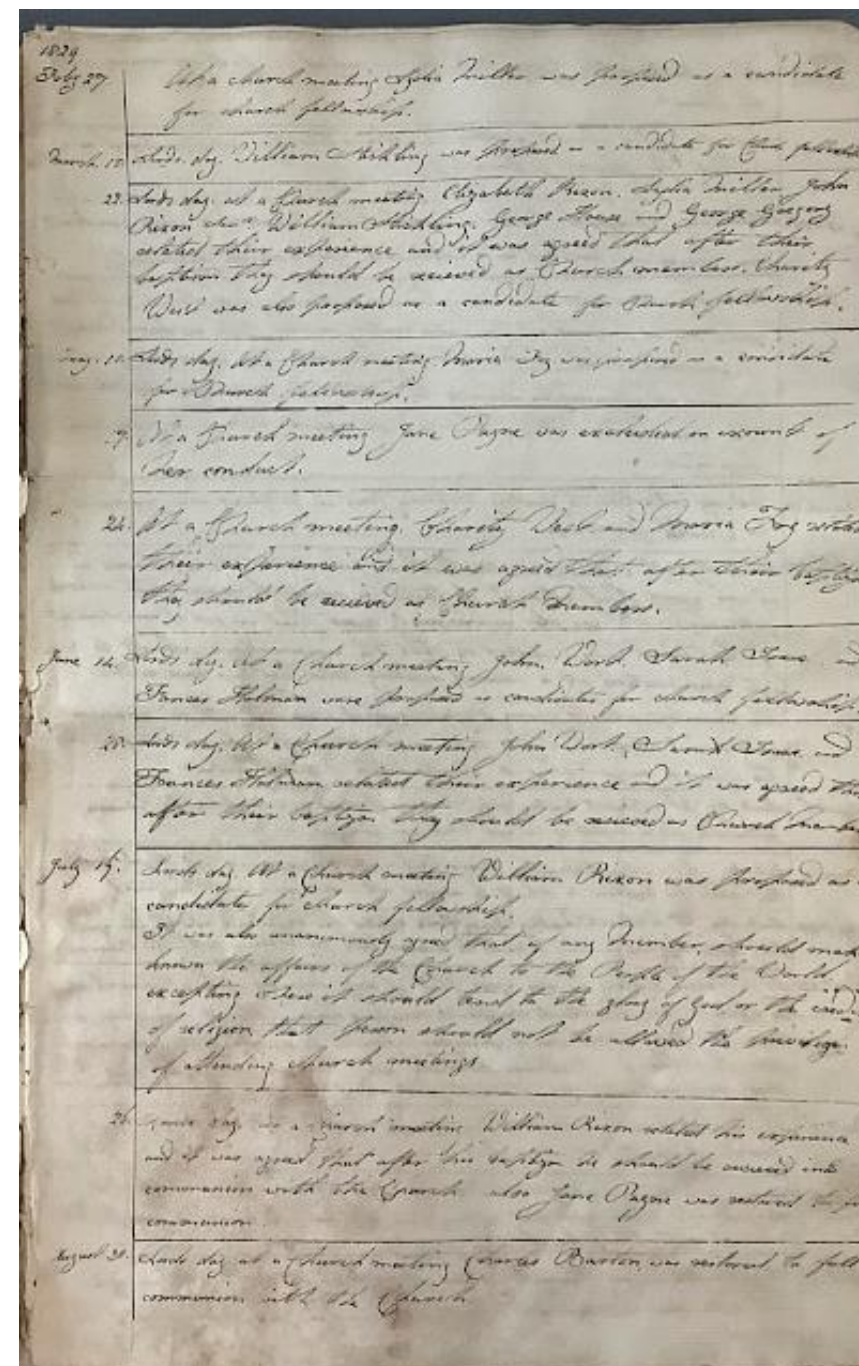 1829
Feby 27 At a church meeting Lydia Miller was proposed as a candidate
for church fellowship.
March 15 Lords day. William Stickling was proposed as a candidate for Church fellowship
22 Lords day at a Church meeting Elizabeth Rixon, Lydia Miller John
Rixon William Stickling, George House and George Gregory
related their experience and it was agreed that after their
baptism they should be recieved as Church members. Charity
West was also proposed as a candidate for Church fellowship.
May. 10 Lords day. At a Church meeting Maria Fry was proposed as a candidate
for Church fellowship.
17 At a Church meeting Jane Payne was excluded on account of
her conduct.
24. At a Church meeting. Charity West and Maria Fry related
their experience and it was agreed that after their baptism
they should be recieved as Church Members.
June 14. Lords day. At a Church meeting John. West. Sarah and
Frances Holman were proposed as candidates for church fellowship.
28. Lords day. At a Church meeting John West, Sarah and
Frances Holman related their experience and it was agreed that
after their baptism they should be recieved as Church Members
July 15. Lords day At a Church meeting William Rixon was proposed as a
candidate for church fellowship.
It was also unanimously agreed that if any Member, should make
known the affairs of the Church to the People of the World
excepting where it should tend to the glory of God or the credit
of religion that person should not be allowed the privilege
of attending church meetings
26 Lords day. At a Church meeting William Rixon related his experience
and it was agreed that after his baptism he should be recieved into
communion with the Church also Jane Payne was restored to full
communion.
August 30. Lords day at a Church meeting Charles Barton was restored to full
communion with the Church